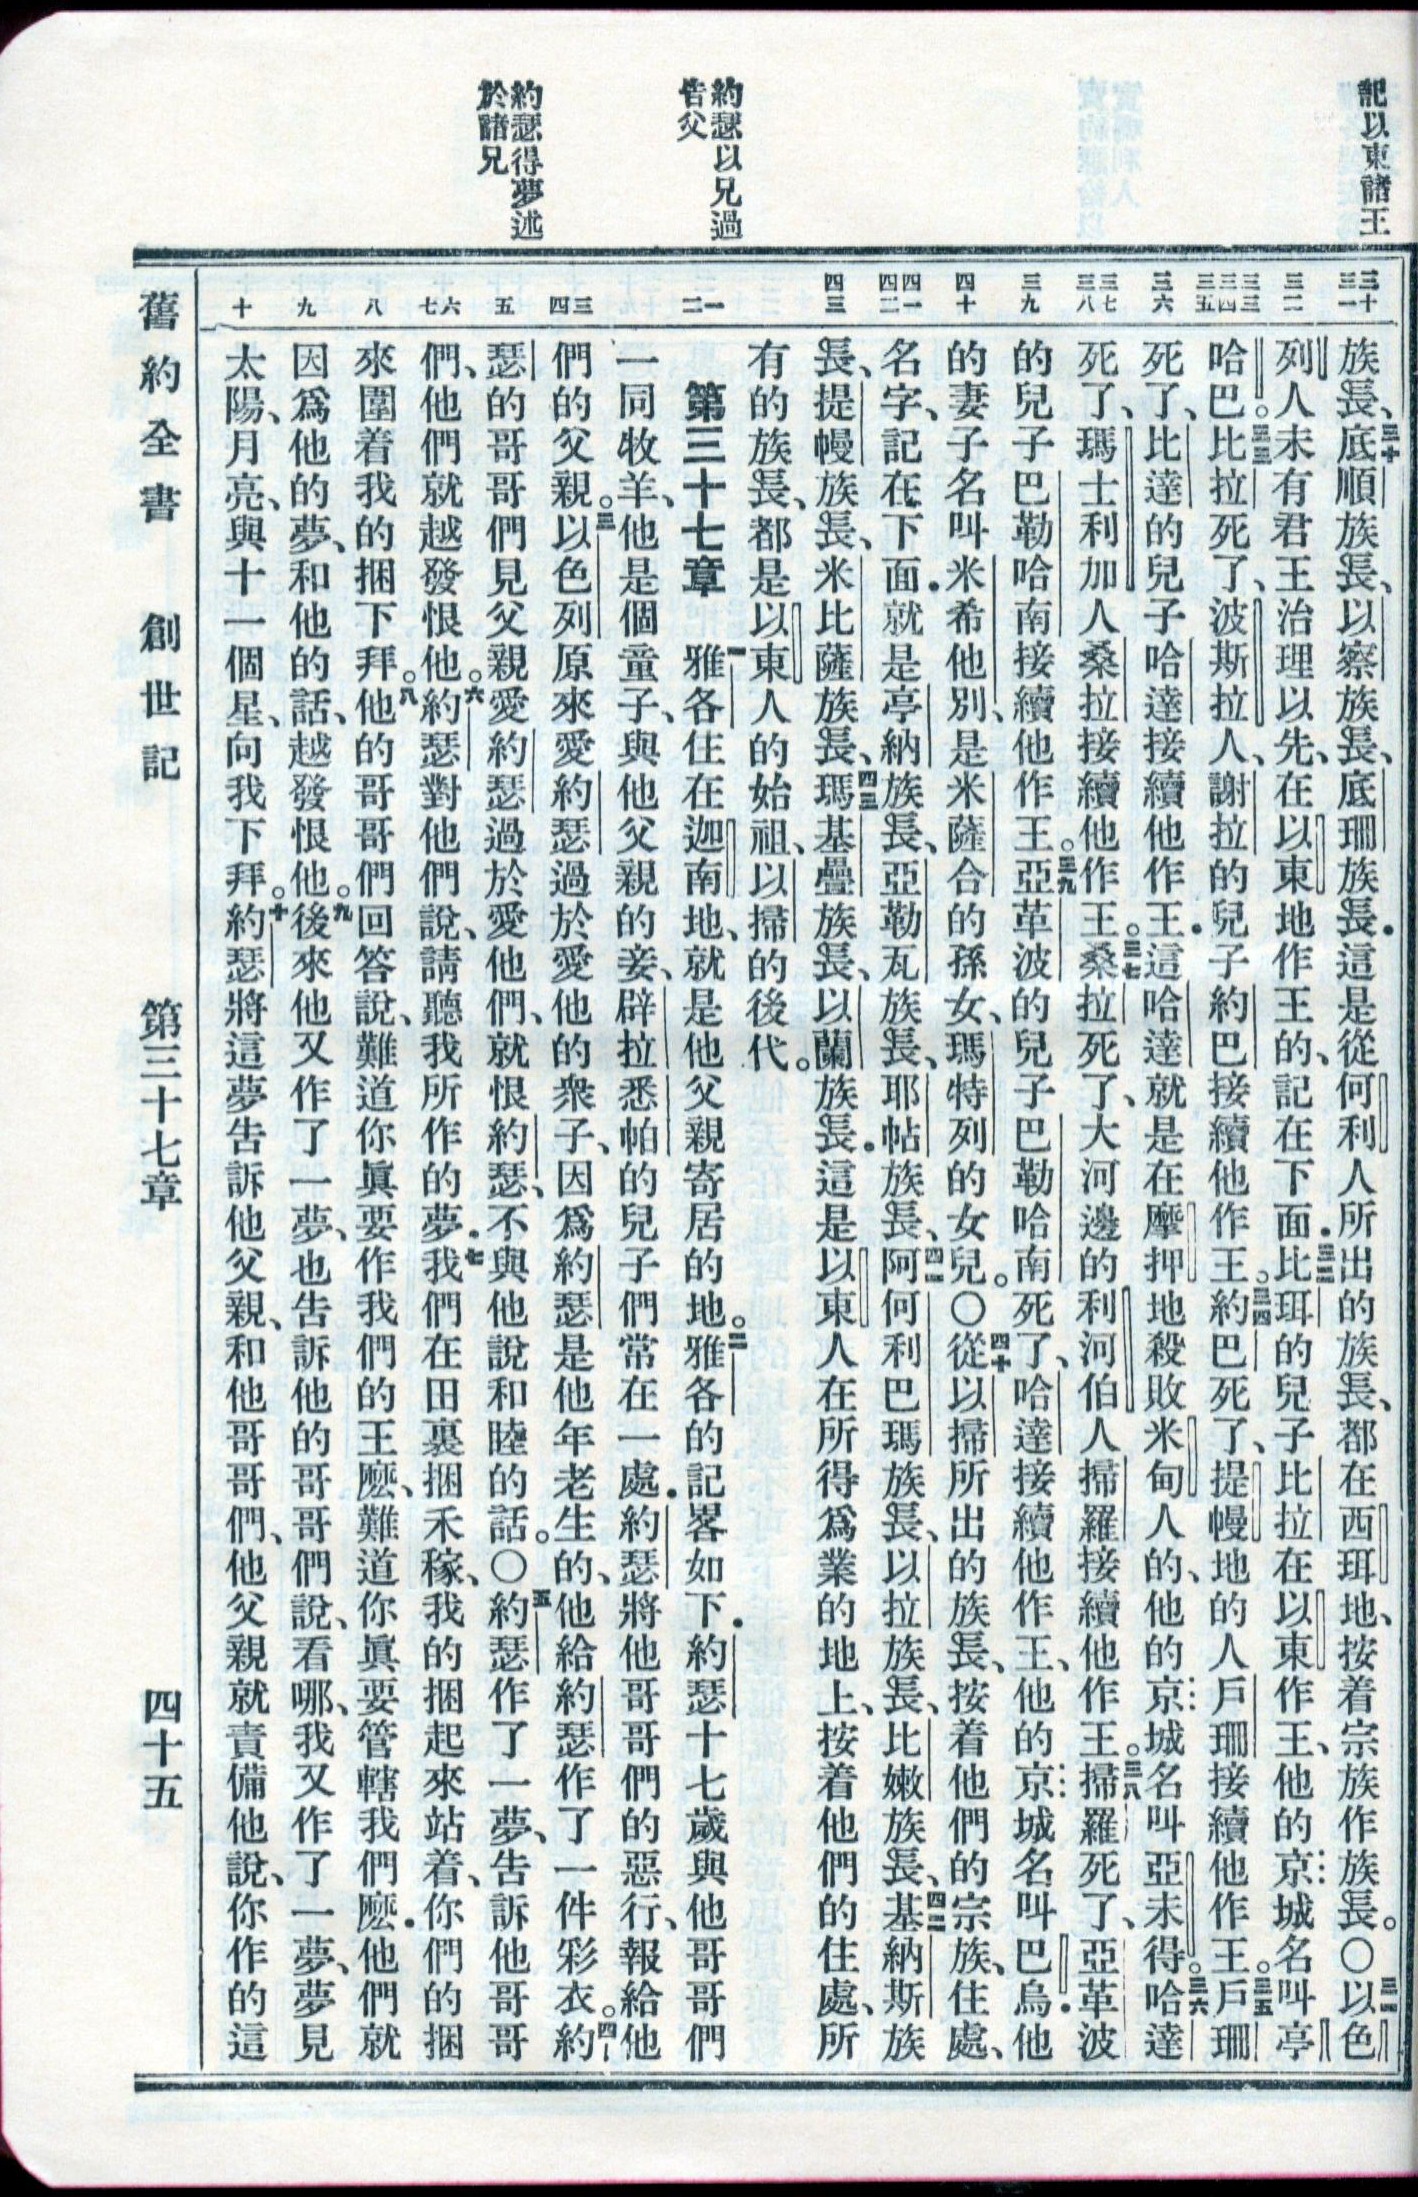 記以東諸王
約瑟以兄過
告父
約瑟得夢述
於諸兄
三十 三一
三二
三三 三四 三五
三六
三七 三八
三九
四十
四一 四二
四三
一 二
三 四
五
六 七
八
九
十
族長、三十底順族長、以察族長、底珊族長．這是從何利人所出的族長、都在西珥地、按着宗族作族長。〇三一以色
列人未有君王治理以先、在以東地作王的、記在下面．三二比珥的兒子比拉在以東作王、他的京城名叫亭
哈巴。三三比拉死了、波斯拉人、謝拉的兒子約巴接續他作王。三四約巴死了、提幔地的人戶珊接續他作王。三五戶珊
死了、比達的兒子哈達接續他作王．這哈達就是在摩押地殺敗米甸人的、他的京城名叫亞未得。三六哈達
死了、瑪士利加人桑拉接續他作王。三七桑拉死了、大河邊的利河伯人掃羅接續他作王。三八掃羅死了、亞革波
的兒子巴勒哈南接續他作王。三九亞革波的兒子巴勒哈南死了、哈達接續他作王、他的京城名叫巴烏．他
的妻子名叫米希他別、是米薩合的孫女、瑪特列的女兒。〇四十從以掃所出的族長、按着他們的宗族、住處、
名字、記在下面．就是亭納族長、亞勒瓦族長、耶帖族長、四一阿何利巴瑪族長、以拉族長、比嫩族長、四二基納斯族
長、提幔族長、米比薩族長、四三瑪基疊族長、以蘭族長．這是以東人在所得爲業的地上、按着他們的住處、所
有的族長、都是以東人的始祖、以掃的後代。
第三十七章 一雅各住在迦南地、就是他父親寄居的地。二雅各的記畧如下．約瑟十七歲與他哥哥們
一同牧羊、他是個童子、與他父親的妾、辟拉悉帕的兒子們常在一處．約瑟將他哥哥們的惡行、報給他
們的父親。三以色列原來愛約瑟過於愛他的衆子、因爲約瑟是他年老生的、他給約瑟作了一件彩衣。四約
瑟的哥哥們見父親愛約瑟過於愛他們、就恨約瑟、不與他說和睦的話。〇五約瑟作了一夢、告訴他哥哥
們、他們就越發恨他。六約瑟對他們說、請聽我所作的夢．七我們在田裏捆禾稼、我的捆起來站着、你們的捆
來圍着我的捆下拜。八他的哥哥們回答說、難道你眞要作我們的王麽、難道你眞要管轄我們麽．他們就
因爲他的夢、和他的話、越發恨他。九後來他又作了一夢、也告訴他的哥哥們說、看哪、我又作了一夢、夢見
太陽、月亮、與十一個星、向我下拜。十約瑟將這夢告訴他父親、和他哥哥們、他父親就責備他說、你作的這
舊約全書 創世記 第三十七章 四十五